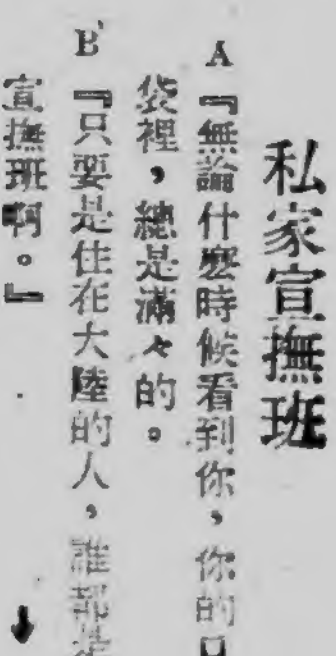 私家宣撫班
A『無論什麼時候看到你，你的口
袋裡，總是滿々的。
B『只要是住在大陸的人，誰都是
宣撫班啊。』